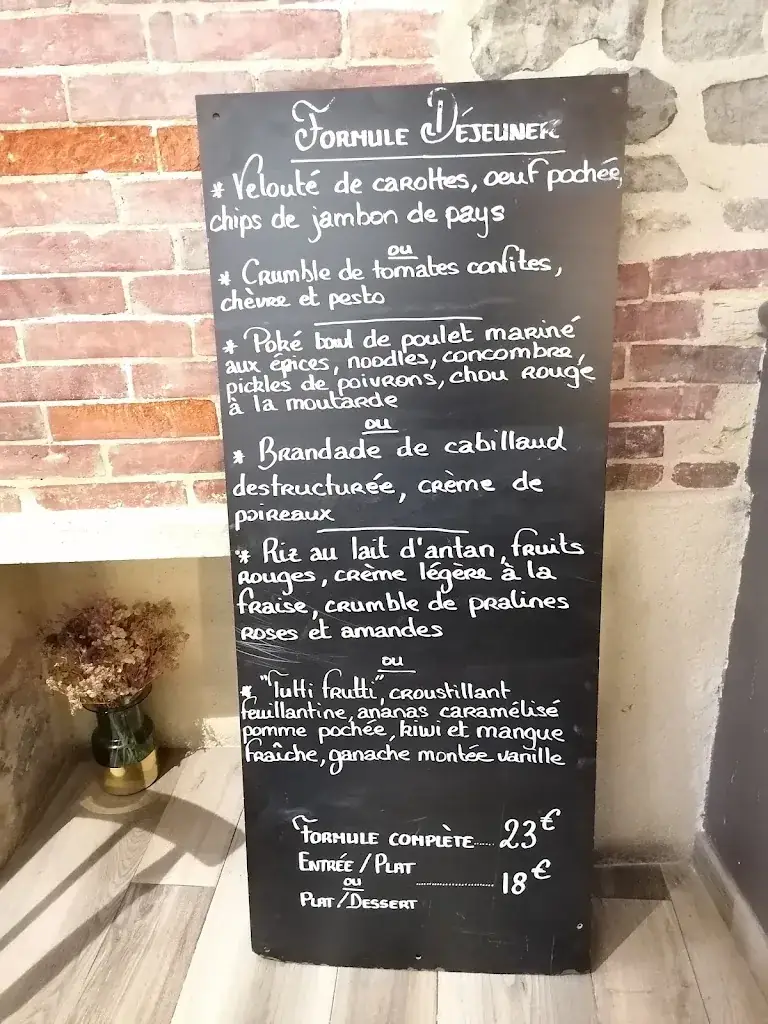 Formule Déjeuner
* Velouté de carottes, oeuf pochée,
chips de jambon de pays
ou
* Crumble de tomates confites,
chèvre et pesto
* Poké bowl de poulet mariné
aux épices, noodles, concombre,
pickles de poivrons, chou rouge
à la moutarde
ou
* Brandade de cabillaud
destructurée, crème de
poireaux
* Riz au lait d'antan, fruits
rouges, crème légère à la
fraise, crumble de pralines
roses et amandes
ou
* "Tutti frutti", croustillant
feuillantine, ananas caramélisé
pomme pochée, kiwi et mangue
fraîche, ganache montée vanille
Formule complète...... 23€
Entrée / Plat
ou .................... 18€
Plat / Dessert